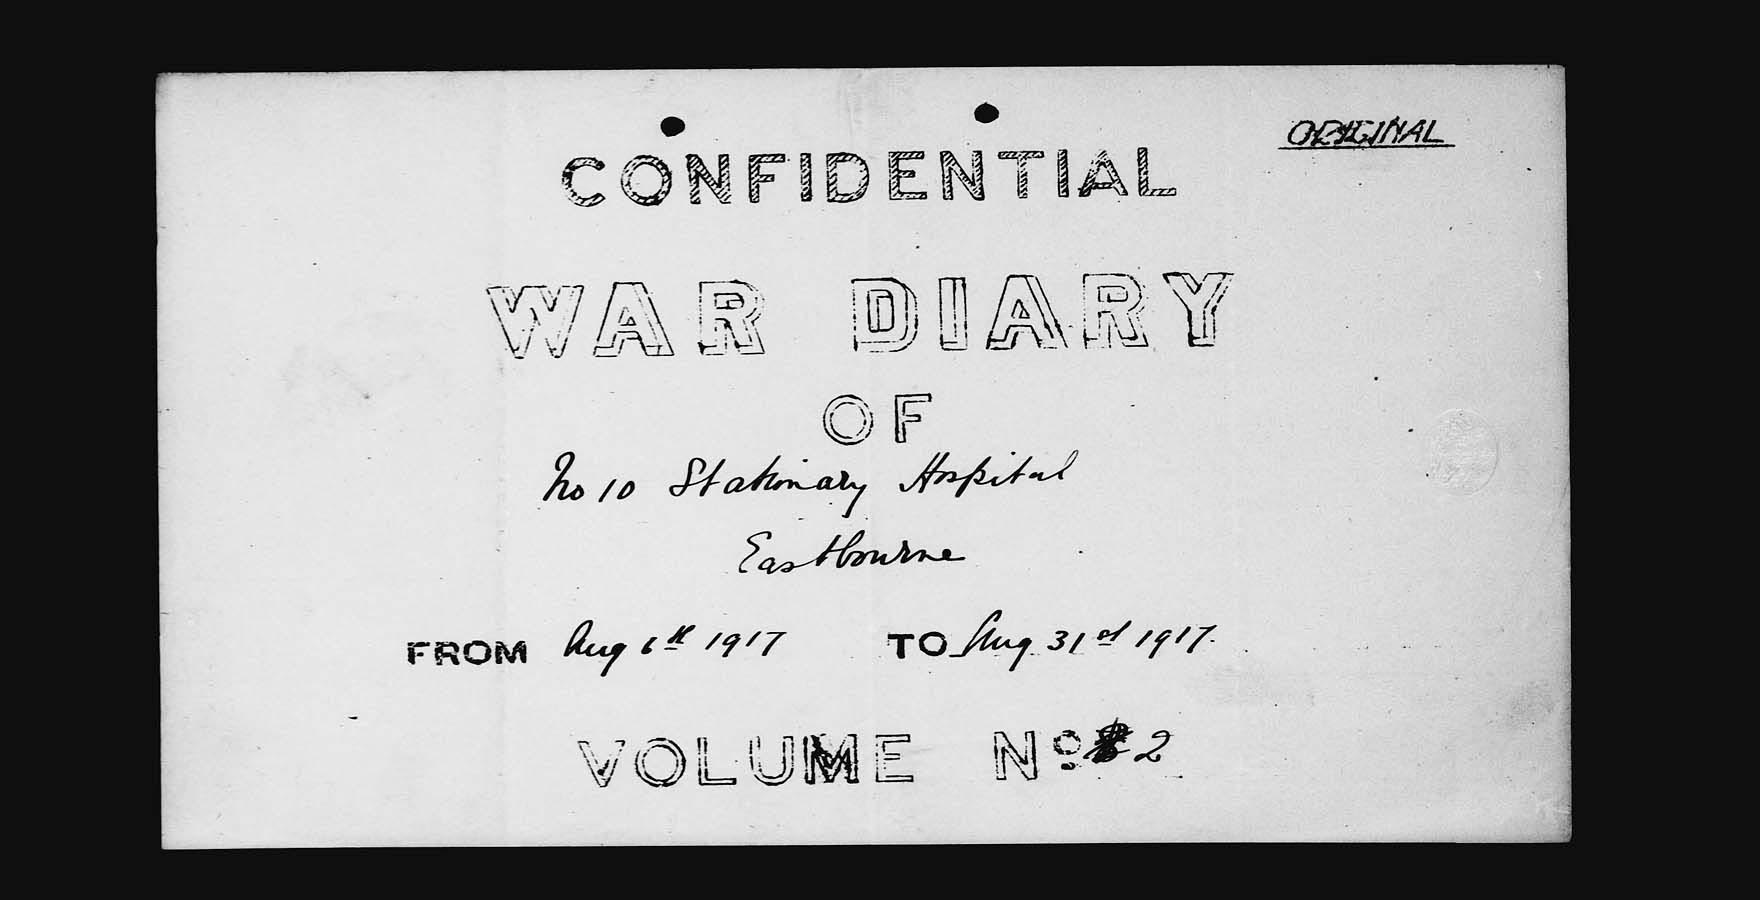 ORIGINAL
CONFIDENTIAL
WAR DIARY
OF
No 10 Stationary Hospital
Eastbourne
FROM Aug 6th 1917 TO Aug 31st 1917.
VOLUME No 2